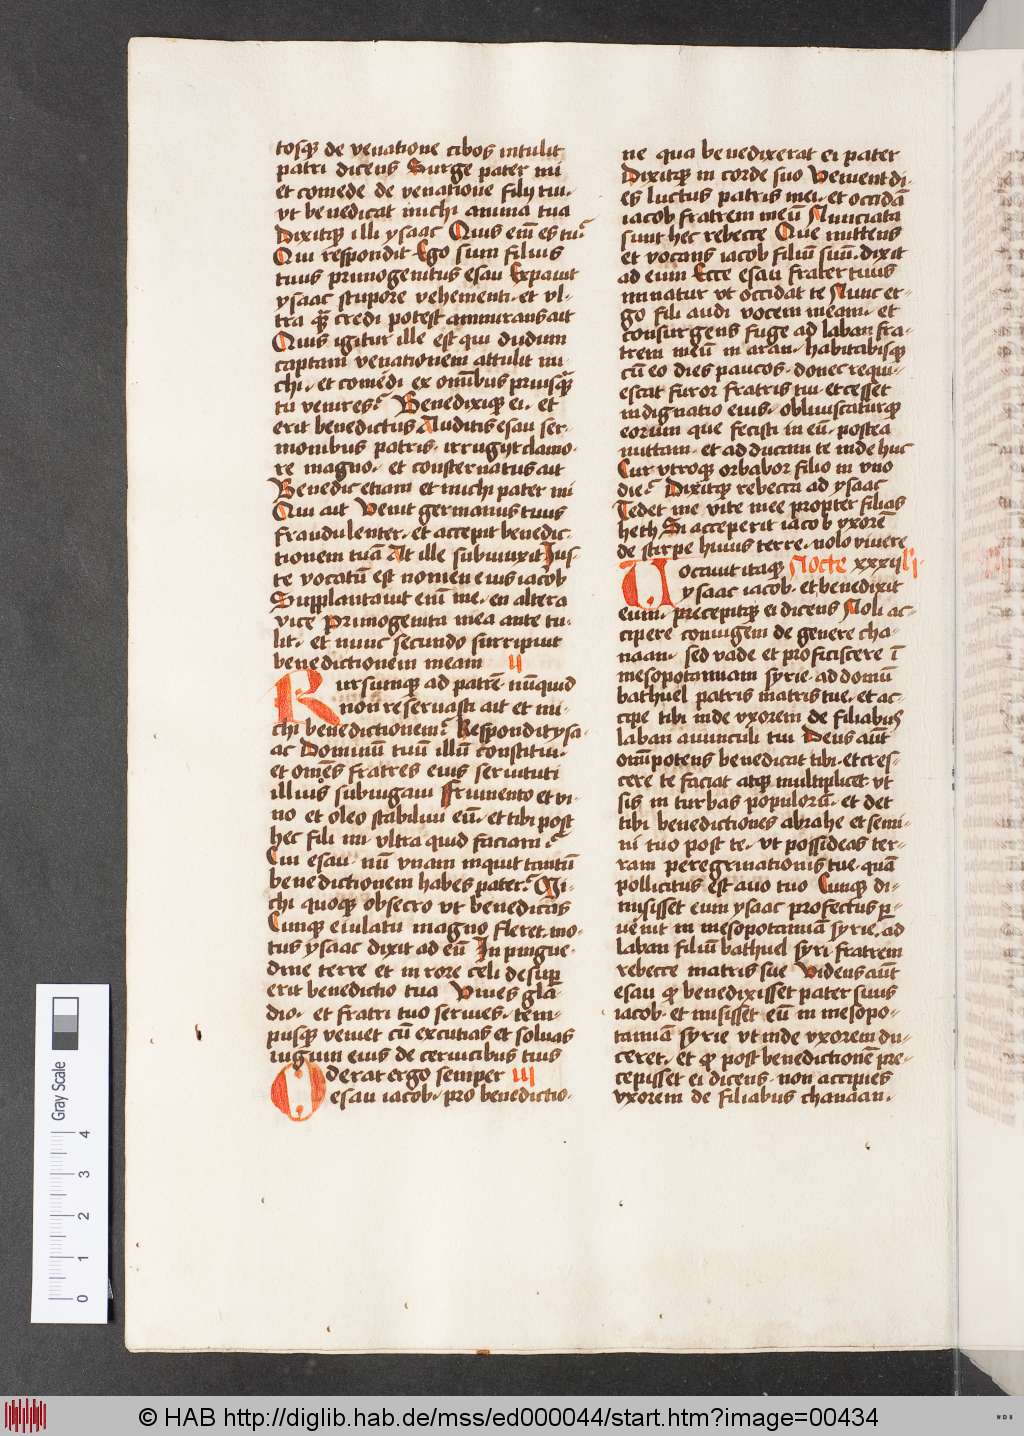 tosqꝫ de venatione cibos intulit
patri dicens Surge pater mi
et comede de venatione filij tui·
vt benedicat michi anima tua
Dixitqꝫ illi ysaac Quis em̄ es tu?
Qui respondit Ego sum filius
tuus primogenitus esau Expauit
ysaac stupore vehementi· et vl-
tra q̄ꝫ credi potest ammirans ait
Quis igitur ille est qui dudum
captam venationem attulit mi
chi· et comedi ex om̄ibus priusq̄ꝫ
tu venires? Benedixiqꝫ ei· et
erit benedictus Auditis esau ser-
monibus patris· irrugijt clamo-
re magno· et consternatus ait
Benedic etiam et michi pater mi
Qui ait Venit germanus tuus
fraudulenter· et accepit benedic-
tionem tuā At ille subiunxit Jus-
te vocatū est nomen eius iacob
Supplantauit eni͂ me· en altera
vice Primogenita mea ante tu-
lit· et nunc secundo surripiuit
benedictionem meam ij
Rursumqꝫ ad patrē· nūquid
non reseruasti ait et mi-
chi benedictionem? Respondit ysa-
ac Dominū tuū illū constitui·
et om̄es fratres eius seruituti
illius subiugaui Frumento et vi-
no et oleo stabiliui eū· et tibi post
hec fili mi vltra quid faciam?
Cui esau· nū vnam inquit tantū
benedictionem habes pater? Mi-
chi quoqꝫ obsecro vt benedicas
Cumqꝫ eiulatu magno fleret· mo-
tus ysaac dixit ad eū In pingue-
dine terre et in rore celi desuꝑ
erit benedictio tua Viues glā-
dio· et fratri tuo seruies· tem-
pusqꝫ veniet cū excutias et soluas
iugum eius de ceruicibus tuis
Oderat ergo semper iij
esau iacob· pro benedictio-
ne qua benedixerat ei pater
Dixitqꝫ in corde suo Venient di-
es luctus patris mei· et occidā
iacob fratrem meū Nunciata
sunt hec rebecce Que mittens
et vocans iacob filiū suū· dixit
ad eum Ecce esau frater tuus
minatur vt occidat te Nunc er-
go fili audi vocem meam· et
consurgens fuge ad laban fra-
trem meū in aran· habitabisqꝫ
cū eo dies paucos· donec requi-
escat furor fratris tui et cesset
indignatio eius· obliuiscaturqꝫ
eorum que fecisti in eū· postea
mittam· et adducam te inde huc
Cur vtroqꝫ orbabor filio in vno
die? Dixitqꝫ rebecca ad ysaac
Tedet me vite mee propter filias
heth Si acceperit iacob vxorē
de stirpe huius terre· nolo viuere
Uocauit itaqꝫ Nocte xxxiiij·
ysaac iacob· et benedixit
eum· precepitqꝫ ei dicens Noli ac-
cipere coniugem de genere cha-
naan· sed vade et proficiscere ī
mesopotamiam syrie· ad domū
bathuel patris matris tue· et ac-
cipe tibi inde vxorem de filiabus
laban auunculi tui Deus aūt
om̄potens benedicat tibi· et cres-
cere te faciat atqꝫ multiplicet· vt
sis in turbas populorū· et det
tibi benedictiones abrahe et semi-
ni tuo post te· vt possideas ter-
ram peregrinationis tue· quā
pollicitus est auo tuo Cumqꝫ di-
misisset eum ysaac profectus ꝑ-
uenit in mesopotamiā syrie· ad
laban filiū bathuel syri fratrem
rebecce matris sue Videns aūt
esau ꝙ benedixisset pater suus
iacob· et misisset eū in mesopo-
tamiā syrie vt inde vxorem du-
ceret· et ꝙ post benedictionē pre-
cepisset ei dicens· non accipies
vxorem de filiabus chanaan·
Gray Scale
0 1 2 3 4
© HAB http://diglib.hab.de/mss/ed000044/start.htm?image=00434